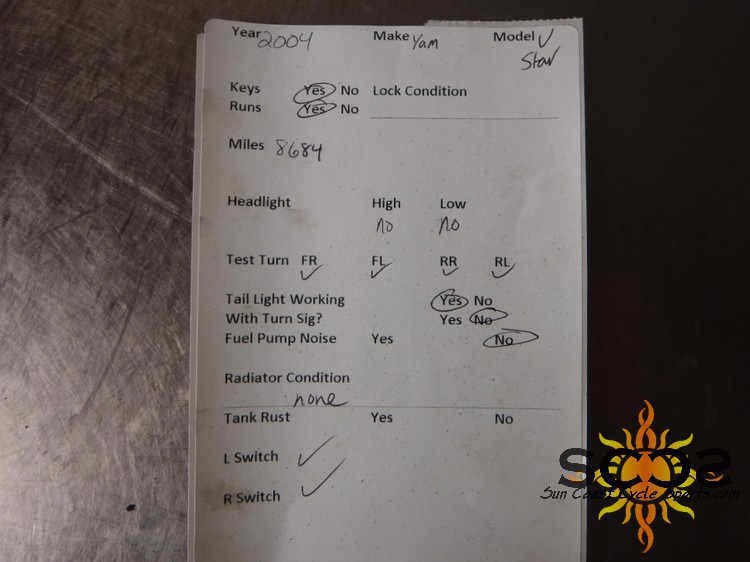 Year 2004 Make Yam Model V
Star
Keys Yes No Lock Condition
Runs Yes No
Miles 8684
Headlight High Low
no no
Test Turn FR FL RR RL
Tail Light Working Yes No
With Turn Sig? Yes No
Fuel Pump Noise Yes No
Radiator Condition
none
Tank Rust Yes No
L Switch
R Switch
SCCS
Sun Coast Cycle Sports.com